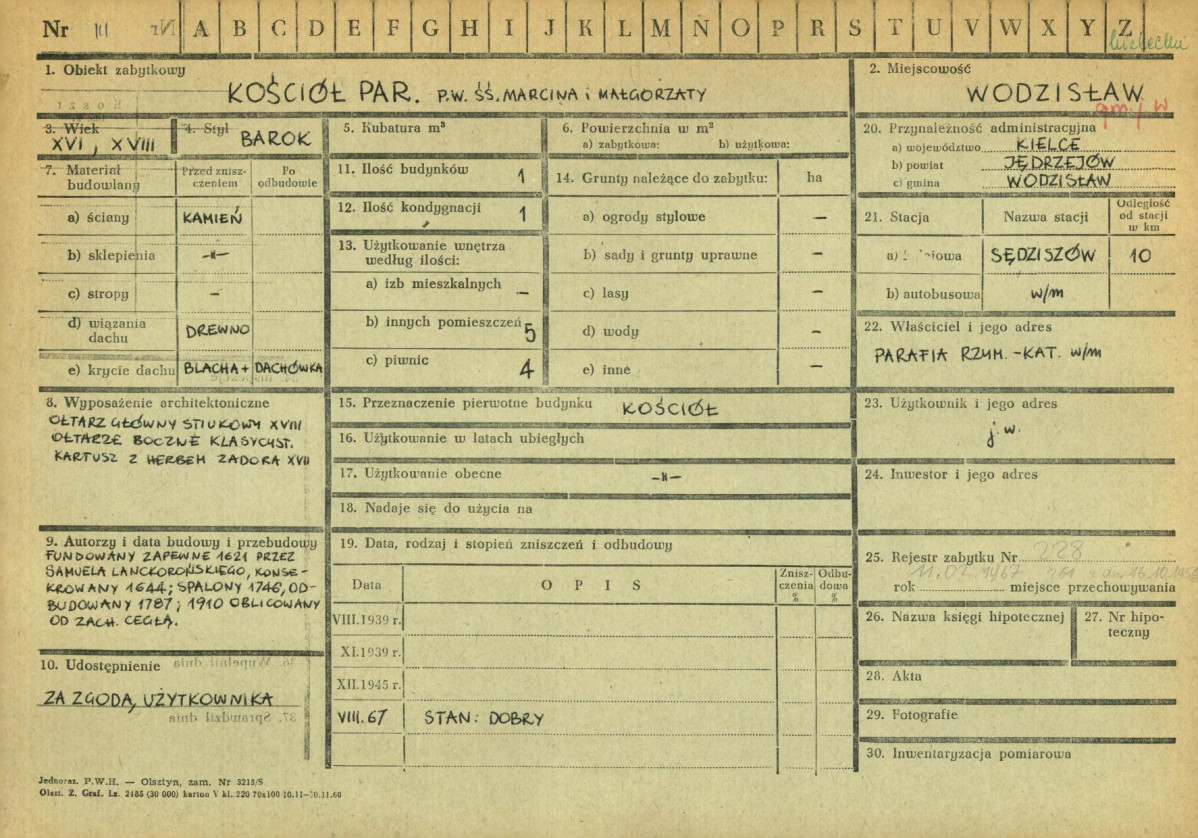 Nr III A B C D E F G H I J K L M N O P R S T U V W X Y Z
1. Obiekt zabytkowy
KOŚCIÓŁ PAR. P.W. ŚŚ. MARCINA i MAŁGORZATY
2. Miejscowość
WODZISŁAW
gm. j/w
3. Wiek
XVI, XVIII
4. Styl
BAROK
5. Kubatura m³
6. Powierzchnia w m²
a) zabytkowa: b) użytkowa:
20. Przynależność administracyjna
a) województwo KIELCE
b) powiat JĘDRZEJÓW
c) gmina WODZISŁAW
7. Materiał budowlany
Przed znisz-
czeniem
Po
odbudowie
a) ściany KAMIEŃ
b) sklepienia -"-
c) stropy -
d) wiązania
dachu DREWNO
e) krycie dachu BLACHA + DACHÓWKA
11. Ilość budynków 1
12. Ilość kondygnacji 1
13. Użytkowanie wnętrza
według ilości:
a) izb mieszkalnych –
b) innych pomieszczeń 5
c) piwnic 4
14. Grunty należące do zabytku: ha
a) ogrody stylowe –
b) sady i grunty uprawne –
c) lasy –
d) wody –
e) inne –
21. Stacja Nazwa stacji
Odległość
od stacji
w km
SĘDZISZÓW 10
b) autobusowa w/m
22. Właściciel i jego adres
PARAFIA RZYM.-KAT. w/m
8. Wyposażenie architektoniczne
OŁTARZ GŁÓWNY STIUKOWY XVIII
OŁTARZE BOCZNE KLASYCYST.
KARTUSZ Z HERBEM ZADORA XVII
15. Przeznaczenie pierwotne budynku KOŚCIÓŁ
16. Użytkowanie w latach ubiegłych
17. Użytkowanie obecne -"-
18. Nadaje się do użycia na
23. Użytkownik i jego adres
j.w.
24. Inwestor i jego adres
9. Autorzy i data budowy i przebudowy
FUNDOWANY ZAPEWNE 1621 PRZEZ
SAMUELA LANCKOROŃSKIEGO, KONSE-
KROWANY 1644; SPALONY 1746, OD-
BUDOWANY 1787; 1910 OBLICOWANY
OD ZACH. CEGŁĄ.
10. Udostępnienie
ZA ZGODĄ UŻYTKOWNIKA
19. Data, rodzaj i stopień zniszczeń i odbudowy
Data O P I S
Znisz-
czenia
%
Odbu-
dowa
%
VIII.1939 r.
XI.1939 r.
XII.1945 r.
VIII.67 STAN: DOBRY
25. Rejestr zabytku Nr 228
rok miejsce przechowywania
26. Nazwa księgi hipotecznej
27. Nr hipo-
teczny
28. Akta
29. Fotografie
30. Inwentaryzacja pomiarowa
Jednoraz. P.W.H. — Olsztyn, zam. Nr 3215/S
Olszt. Z. Graf. Lz. 2485 (30 000) karton V kl. 220 70x100 10.11—30.11.60